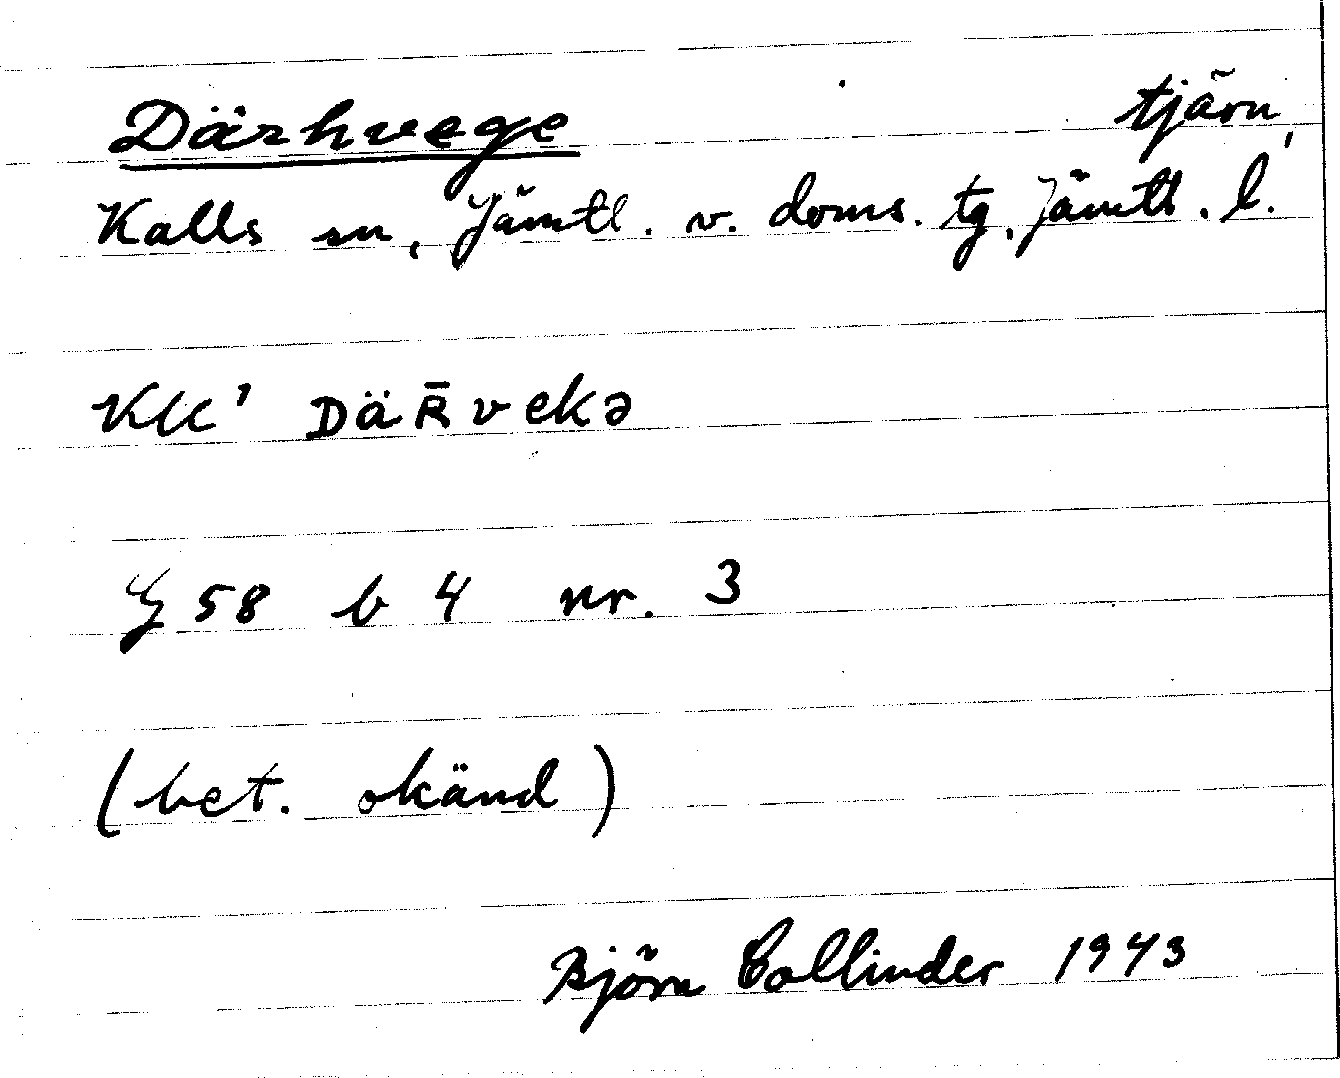 Därhvege tjärn,
Kalls sn, Jämtl. v. doms. tg. Jämtl. l.
KLL' DäR̄vekə
§ 58 b 4 nr. 3
(bet. okänd)
Björn Collinder 1943